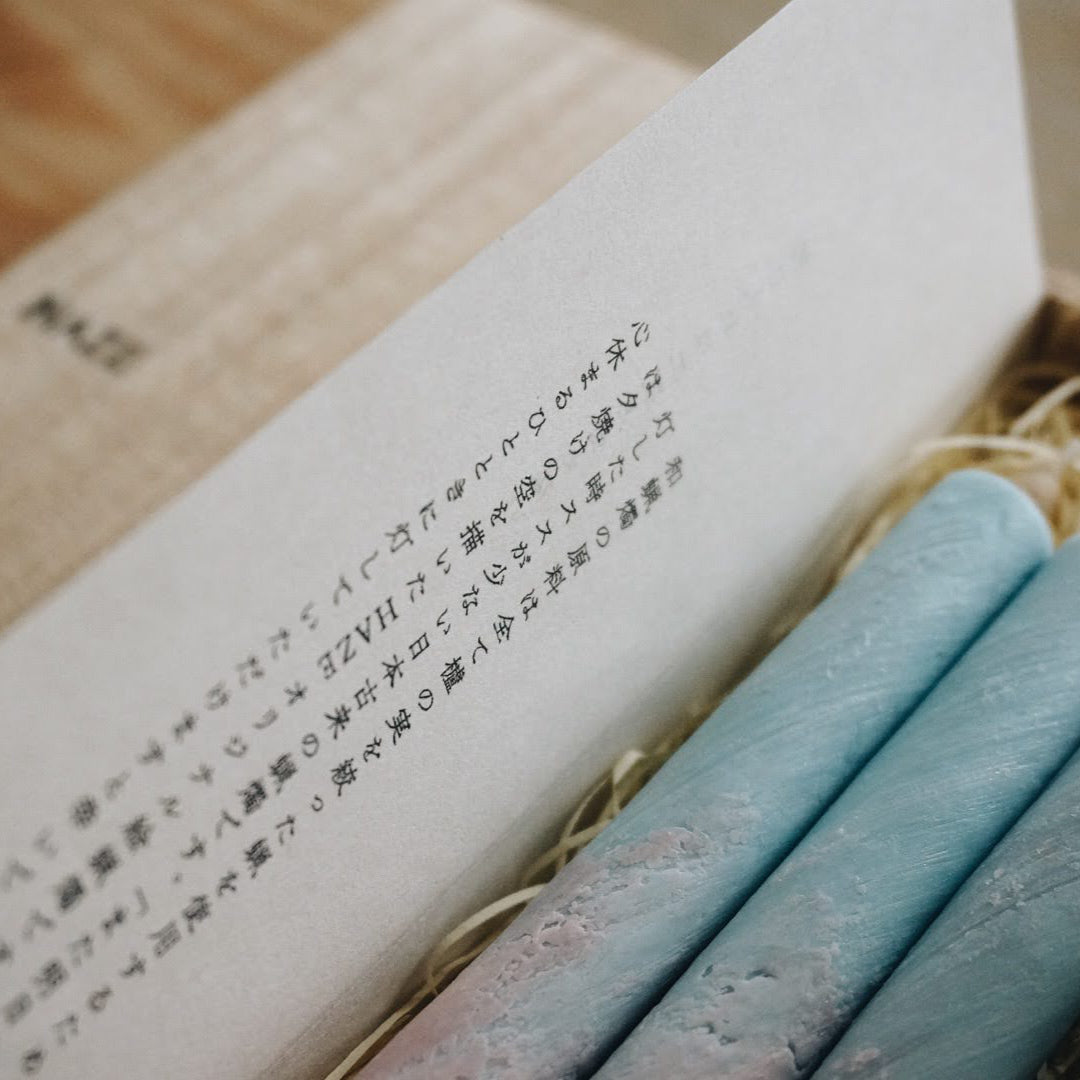 和蝋燭の原料は全て櫨の実を絞った蝋を使用するため
灯した時ススが少ない日本古来の蝋燭です。「また明日
は夕焼けの空を描いたHAZEオリジナル絵蝋燭です
心休まるひとときに灯していただけますと幸いで